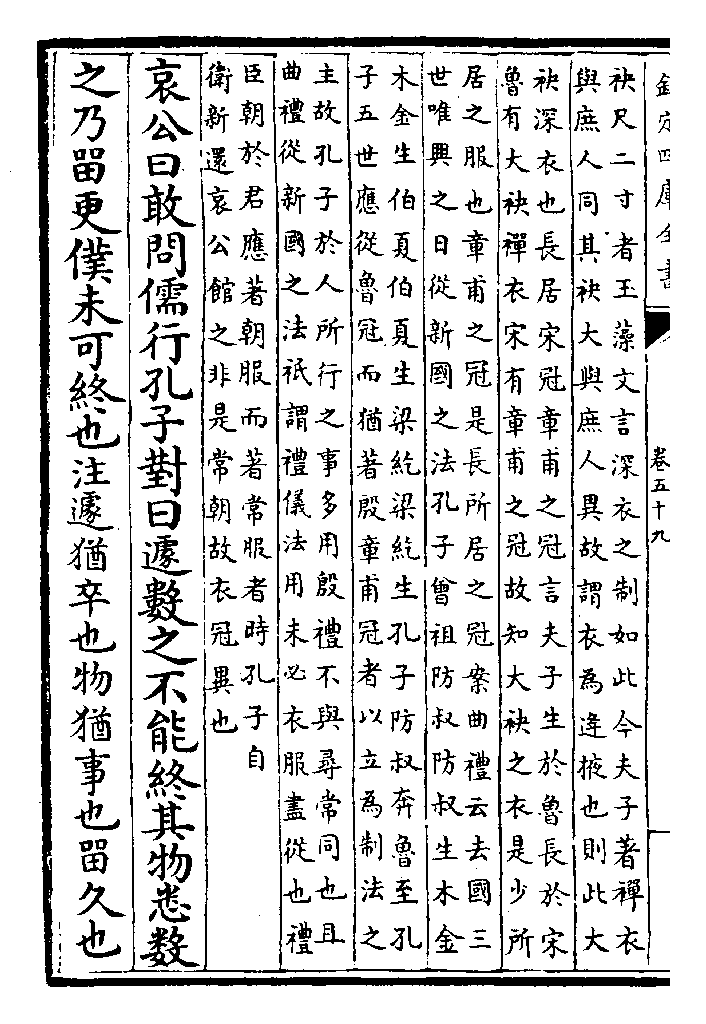 欽定四庫全書
卷五十九
袂尺二寸者玉藻文言深衣之制如此今夫子著禪衣
與庶人同其袂大與庶人異故謂衣為逢掖也則此大
袂深衣也長居宋冠章甫之冠言夫子生於魯長於宋
魯有大袂禪衣宋有章甫之冠故知大袂之衣是少所
居之服也章甫之冠是長所居之冠案曲禮云去國三
世唯興之日從新國之法孔子曾祖防叔防叔生木金
木金生伯夏伯夏生梁紇梁紇生孔子防叔奔魯至孔
子五世應從魯冠而猶著殷章甫冠者以立為制法之
主故孔子於人所行之事多用殷禮不與尋常同也且
曲禮從新國之法祇謂禮儀法用未必衣服盡從也禮
臣朝於君應著朝服而著常服者時孔子自
衛新還哀公館之非是常朝故衣冠異也
哀公曰敢問儒行孔子對曰遽數之不能終其物悉數
之乃留更僕未可終也注遽猶卒也物猶事也留久也